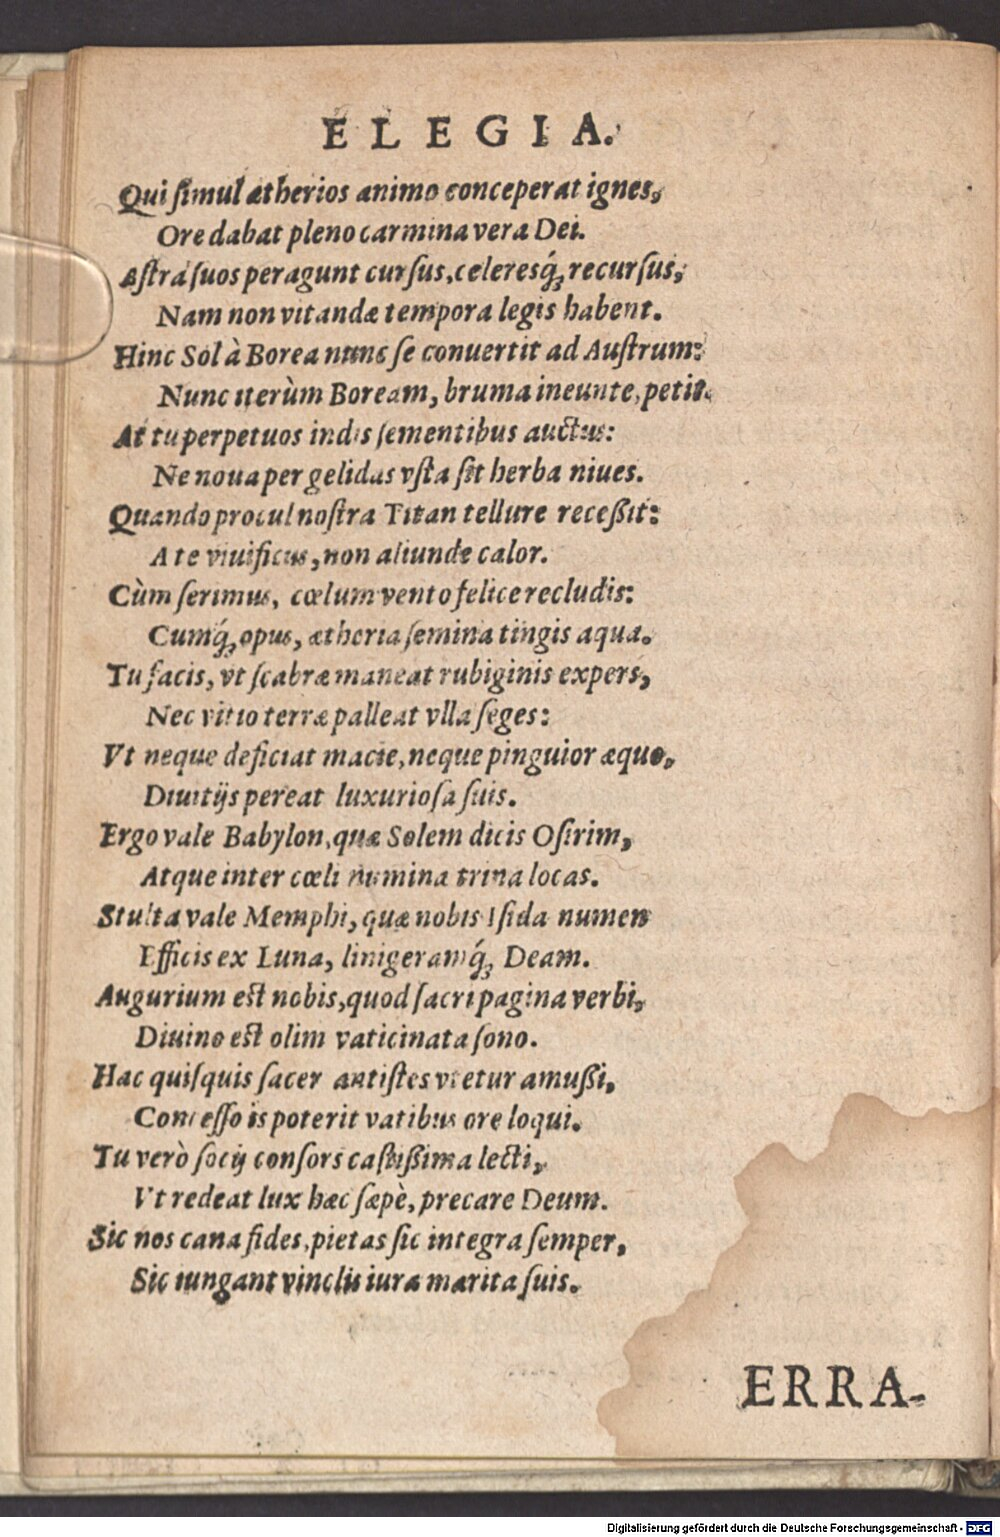 ELEGIA.
Qui ſimul ætherios animo conceperat ignes,
Ore dabat pleno carmina vera Dei.
Aſtra ſuos peragunt curſus, celeresq́ꝫ recurſus,
Nam non vitandæ tempora legis habent.
Hinc Sol à Borea nunc ſe conuertit ad Auſtrum:
Nunc iterùm Boream, bruma ineunte, petit.
At tu perpetuos indis ſementibus auctus:
Ne noua per gelidas vſta ſit herba niues.
Quando procul noſtra Titan tellure receßit:
A te viuificus, non aliunde calor.
Cùm ſerimus, cœlum vento felice recludis:
Cumq́ꝫ opus, ætheria ſemina tingis aqua.
Tu facis, vt ſcabræ maneat rubiginis expers,
Nec vitio terræ palleat vlla ſeges:
Vt neque deficiat macie, neque pinguior æquo,
Diuitijs pereat luxurioſa ſuis.
Ergo vale Babylon, quæ Solem dicis Oſirim,
Atque inter cœli numina trina locas.
Stulta vale Memphi, quæ nobis Iſida numen
Efficis ex Luna, linigeramq́ꝫ Deam.
Augurium est nobis, quod ſacri pagina verbi,
Diuino est olim vaticinata ſono.
Hac quiſquis ſacer antiſtes vtetur amußi,
Conceſſo is poterit vatibus ore loqui.
Tu verò ſocij conſors caſtißima lecti,
Vt redeat lux hæc ſæpè, precare Deum.
Sic nos cana fides, pietas ſic integra ſemper,
Sic iungant vinclis iura marita ſuis.
ERRA-
Digitalisierung gefördert durch die Deutsche Forschungsgemeinschaft - DFG